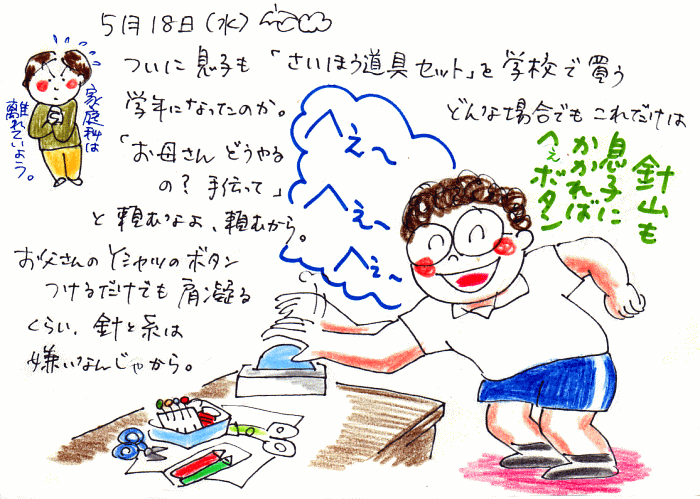 5月18日(水)
ついに息子も「さいほう道具セット」を学校で買う
学年になったのか。
どんな場合でもこれだけは
「お母さんどうやる
の?手伝って」
と頼むなよ、頼むから。
お父さんのYシャツのボタン
つけるだけでも肩凝る
くらい、針と糸は
嫌いなんじゃから。
家庭科は
離れていよう。
へぇ〜
へぇ〜
へぇ〜
針山も
息子に
かかれば
へぇボタン